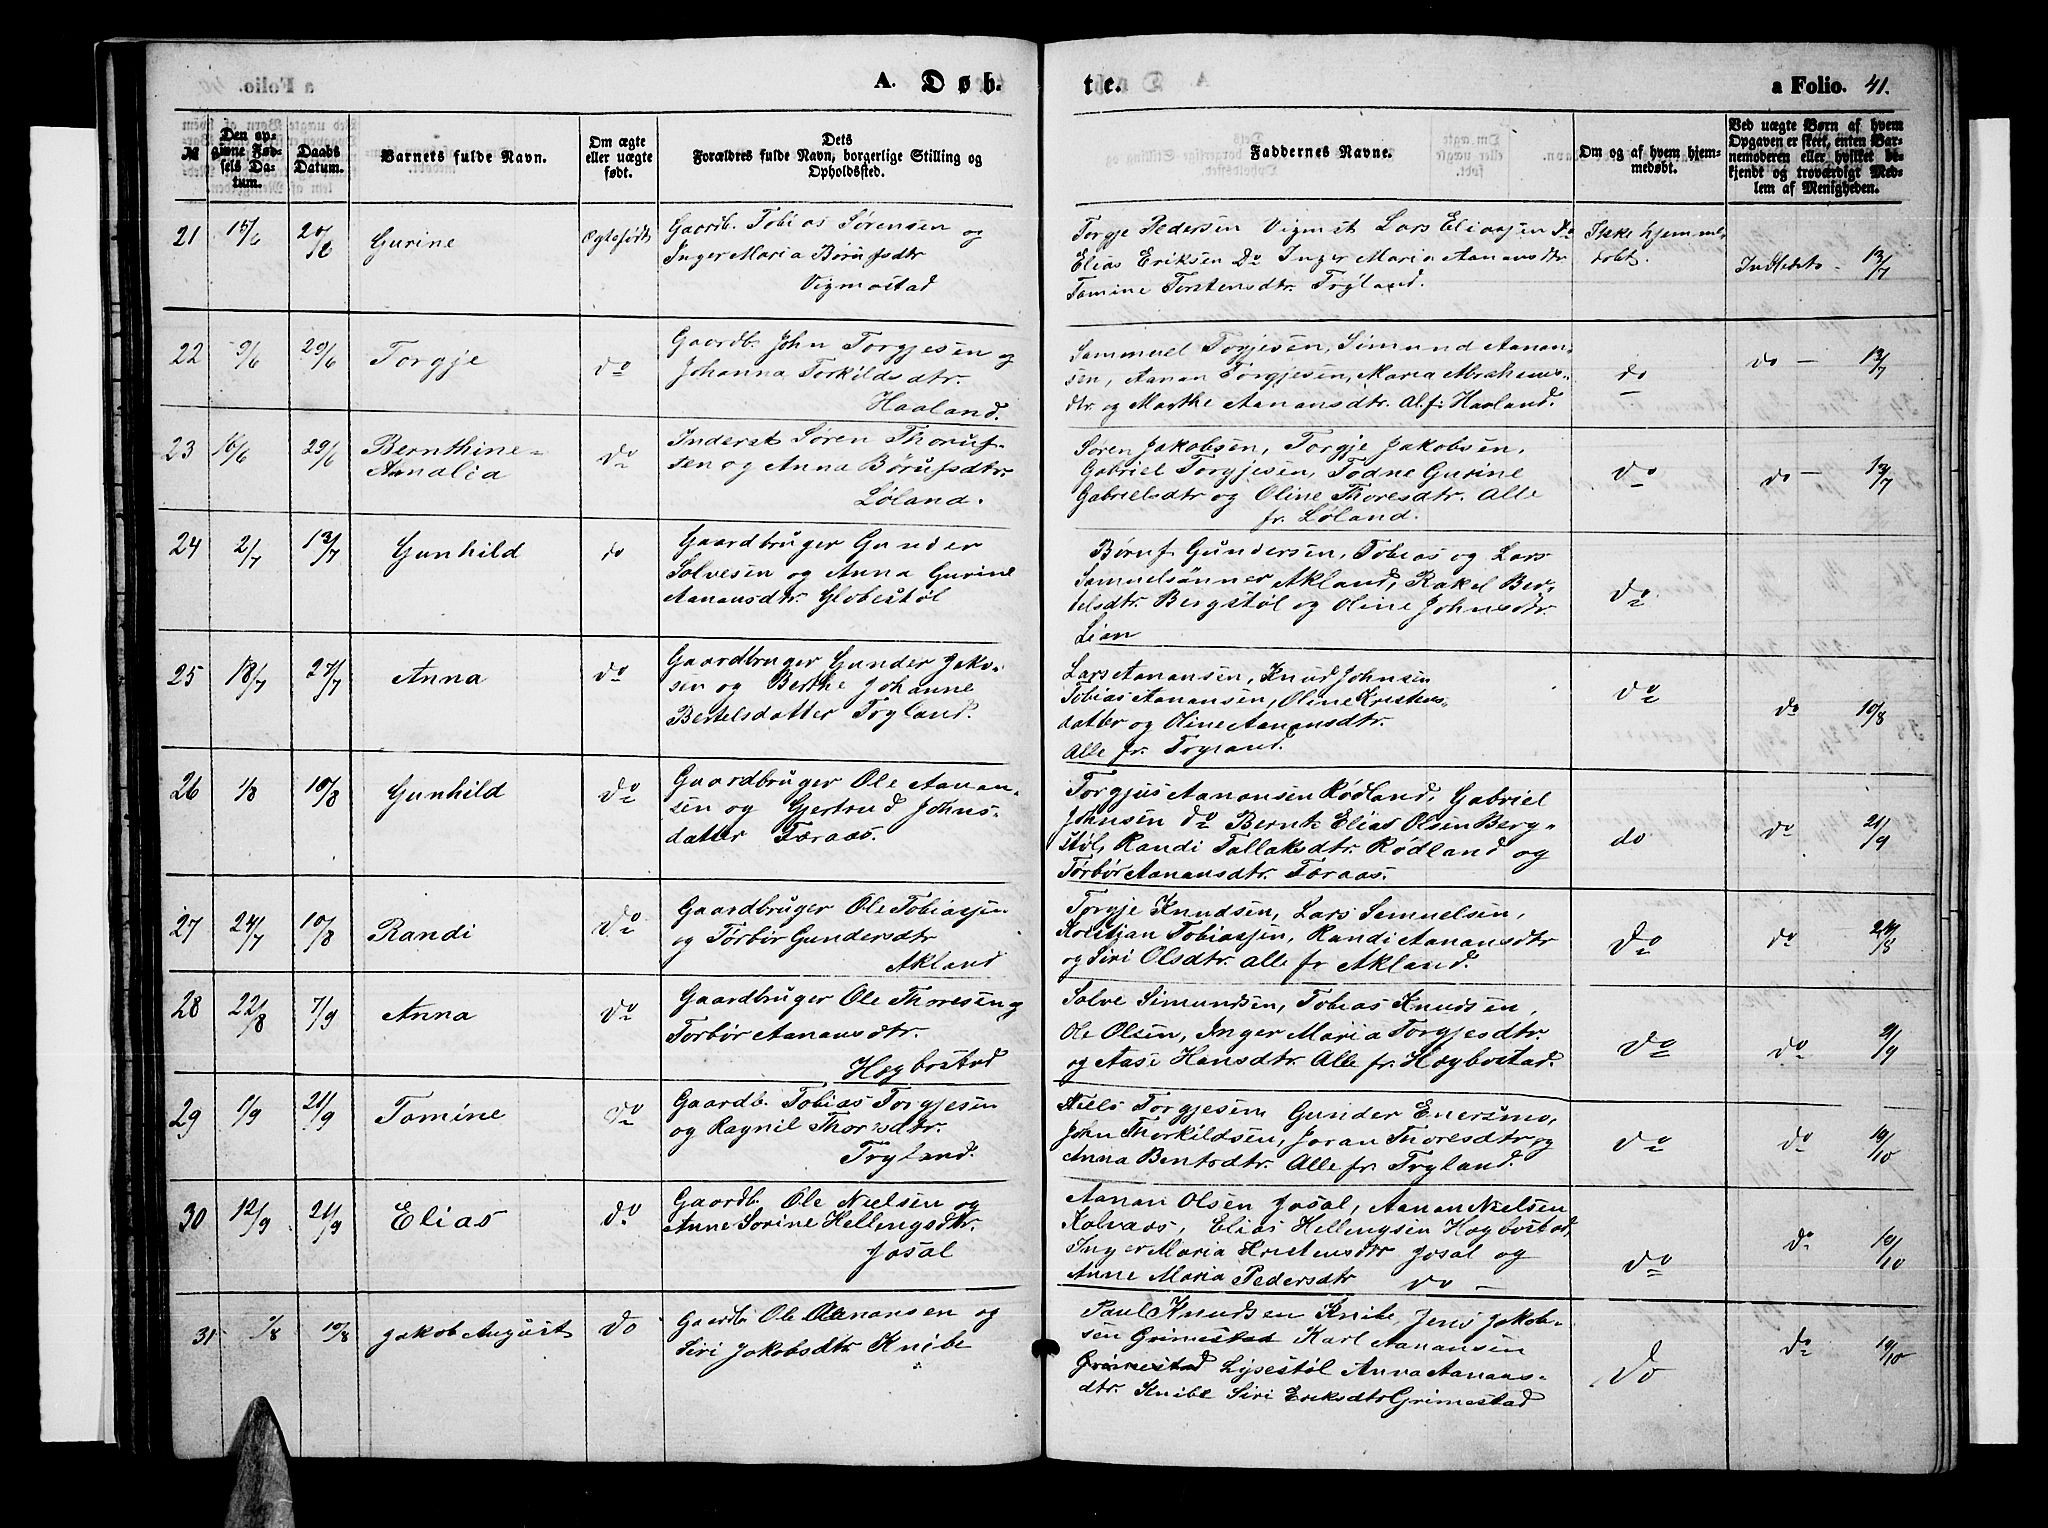 A. Døb.
№
Den opgivne Fødsels Datum.
Daabs Datum.
Barnets fulde Navn.
Om ægte eller uægte født.
Dets Forældres fulde Navn, borgerlige Stilling og Opholdssted.
21 15/6 20/6 Gurine Ægtefødt Gaardb. Tobias Sørensen og
Inger Maria Børufsdtr
Vigmostad
22 9/6 29/6 Torgje do Gaardb. John Torgjesen og
Johanna Torkildsdtr.
Haaland.
23 16/6 29/6 Bernthine- do Inderst Søren Thoruf-
Amalia sen og Anna Børufsdtr
Løland.
24 2/7 13/7 Gunhild do Gaardbruger Gunder
Salvesen og Anna Gurine
Aanansdtr. Glebestøl
25 18/7 27/7 Anna do Gaardbruger Gunder Jako-
sen og Berthe Johanne
Bertelsdatter Tryland.
26 1/8 10/8 Gunhild do Gaardbruger Ole Aanan-
sen og Gjertrud Johns-
datter Færaas.
27 24/7 10/8 Randi do Gaardbruger Ole Tobiassen
og Tørbør Gundersdtr
Akland
28 22/8 7/9 Anna do Gaardbruger Ole Thoresen og
Torbør Aanansdtr.
Høgbostad
29 1/9 21/9 Tomine do Gaardb. Tobias Torgjesen
og Ragnil Thorsdtr.
Tryland.
30 12/9 21/9 Elias do Gaardb. Ole Nielsen og
Anne Sorine Hellengsdtr.
Josal
31 10/8 Jakob August do Gaardb. Ole Aanansen og
Siri Jakobsdtr. Knibe
te. a Folio. 41.
Faddernes Navne.
Om og af hvem hjemmedøbt.
Ved uægte Børn af hvem Opgaven er skeet, enten Barnemoderen eller hvilket bekjendt og troværdigt Medlem af Menigheden.
Torgje Pedersen Vigmst Lars Eliassen do Ikke hjemme-
Elias Eriksen Do Inger Maria Aanansdtr døbt. Indledets - 13/7
Tomine Torstensdtr. Tryland.
Sammuel Torgjesen, Simund Aanan-
sen, Aanan Torgjesen, Maria Abrahams- do do - 13/7
dtr. og Marthe Aanansdtr. Al. fr Haaland.
Søren Jakobsen, Torgje Jakobsen,
Gabriel Torgjesen, Todne Gurine do do - 13/7
Gabrielsdtr og Oline Thoresdtr. Alle
fr. Løland.
Børuf Gundersen, Tobias og Lars
Samuelsønner Akland, Rakel Ber- do
telsdtr. Bergstøl og Oline Johnsdtr
Lian
Lars Aanansen, Knud Johnsen
Tobias Aanansen, Oline Kristens- do do 10/8
datter og Oline Aanansdtr.
Alle fr. Tryland.
Torgjus Aanansen Rødland, Gabriel
Johnsen do Bernt Elias Olsen Berg-
støl, Randi Tallaksdtr. Rødland og do do 21/9
Tørbør Aanansdtr. Færaas.
Torgje Knudsen, Lars Samuelsen,
Kristjan Tobiassen, Randi Aanansdtr do do 24/8
og Siri Olsdtr. alle fr Akland.
Salve Simundsen, Tobias Knudsen,
Ole Olsen, Inger Maria Torgjesdtr. do do 21/9
og Aase Hansdtr. Alle fr. Høgbostad.
Niels Torgjesen, Gunder Enersmo,
John Thorkildsen, Joran Thoresdtr og do do 19/10
Anna Bentsdtr. Alle fr. Tryland.
Aanan Olsen Josal, Aanan Nielsen
Kolvaas, Elias Hellengsen Høgbostad,
Inger Maria Kristensdtr Josal og do do 19/10
Anne Maria Pedersdtr do -
Paul Knudsen Knibe, Jens Jakob-
sen Grimestad Karl Aanansen do do 19/10
Grimestad Lysestøl Anna Aanans-
dtr. Knibe Siri Eriksdtr Grimestad